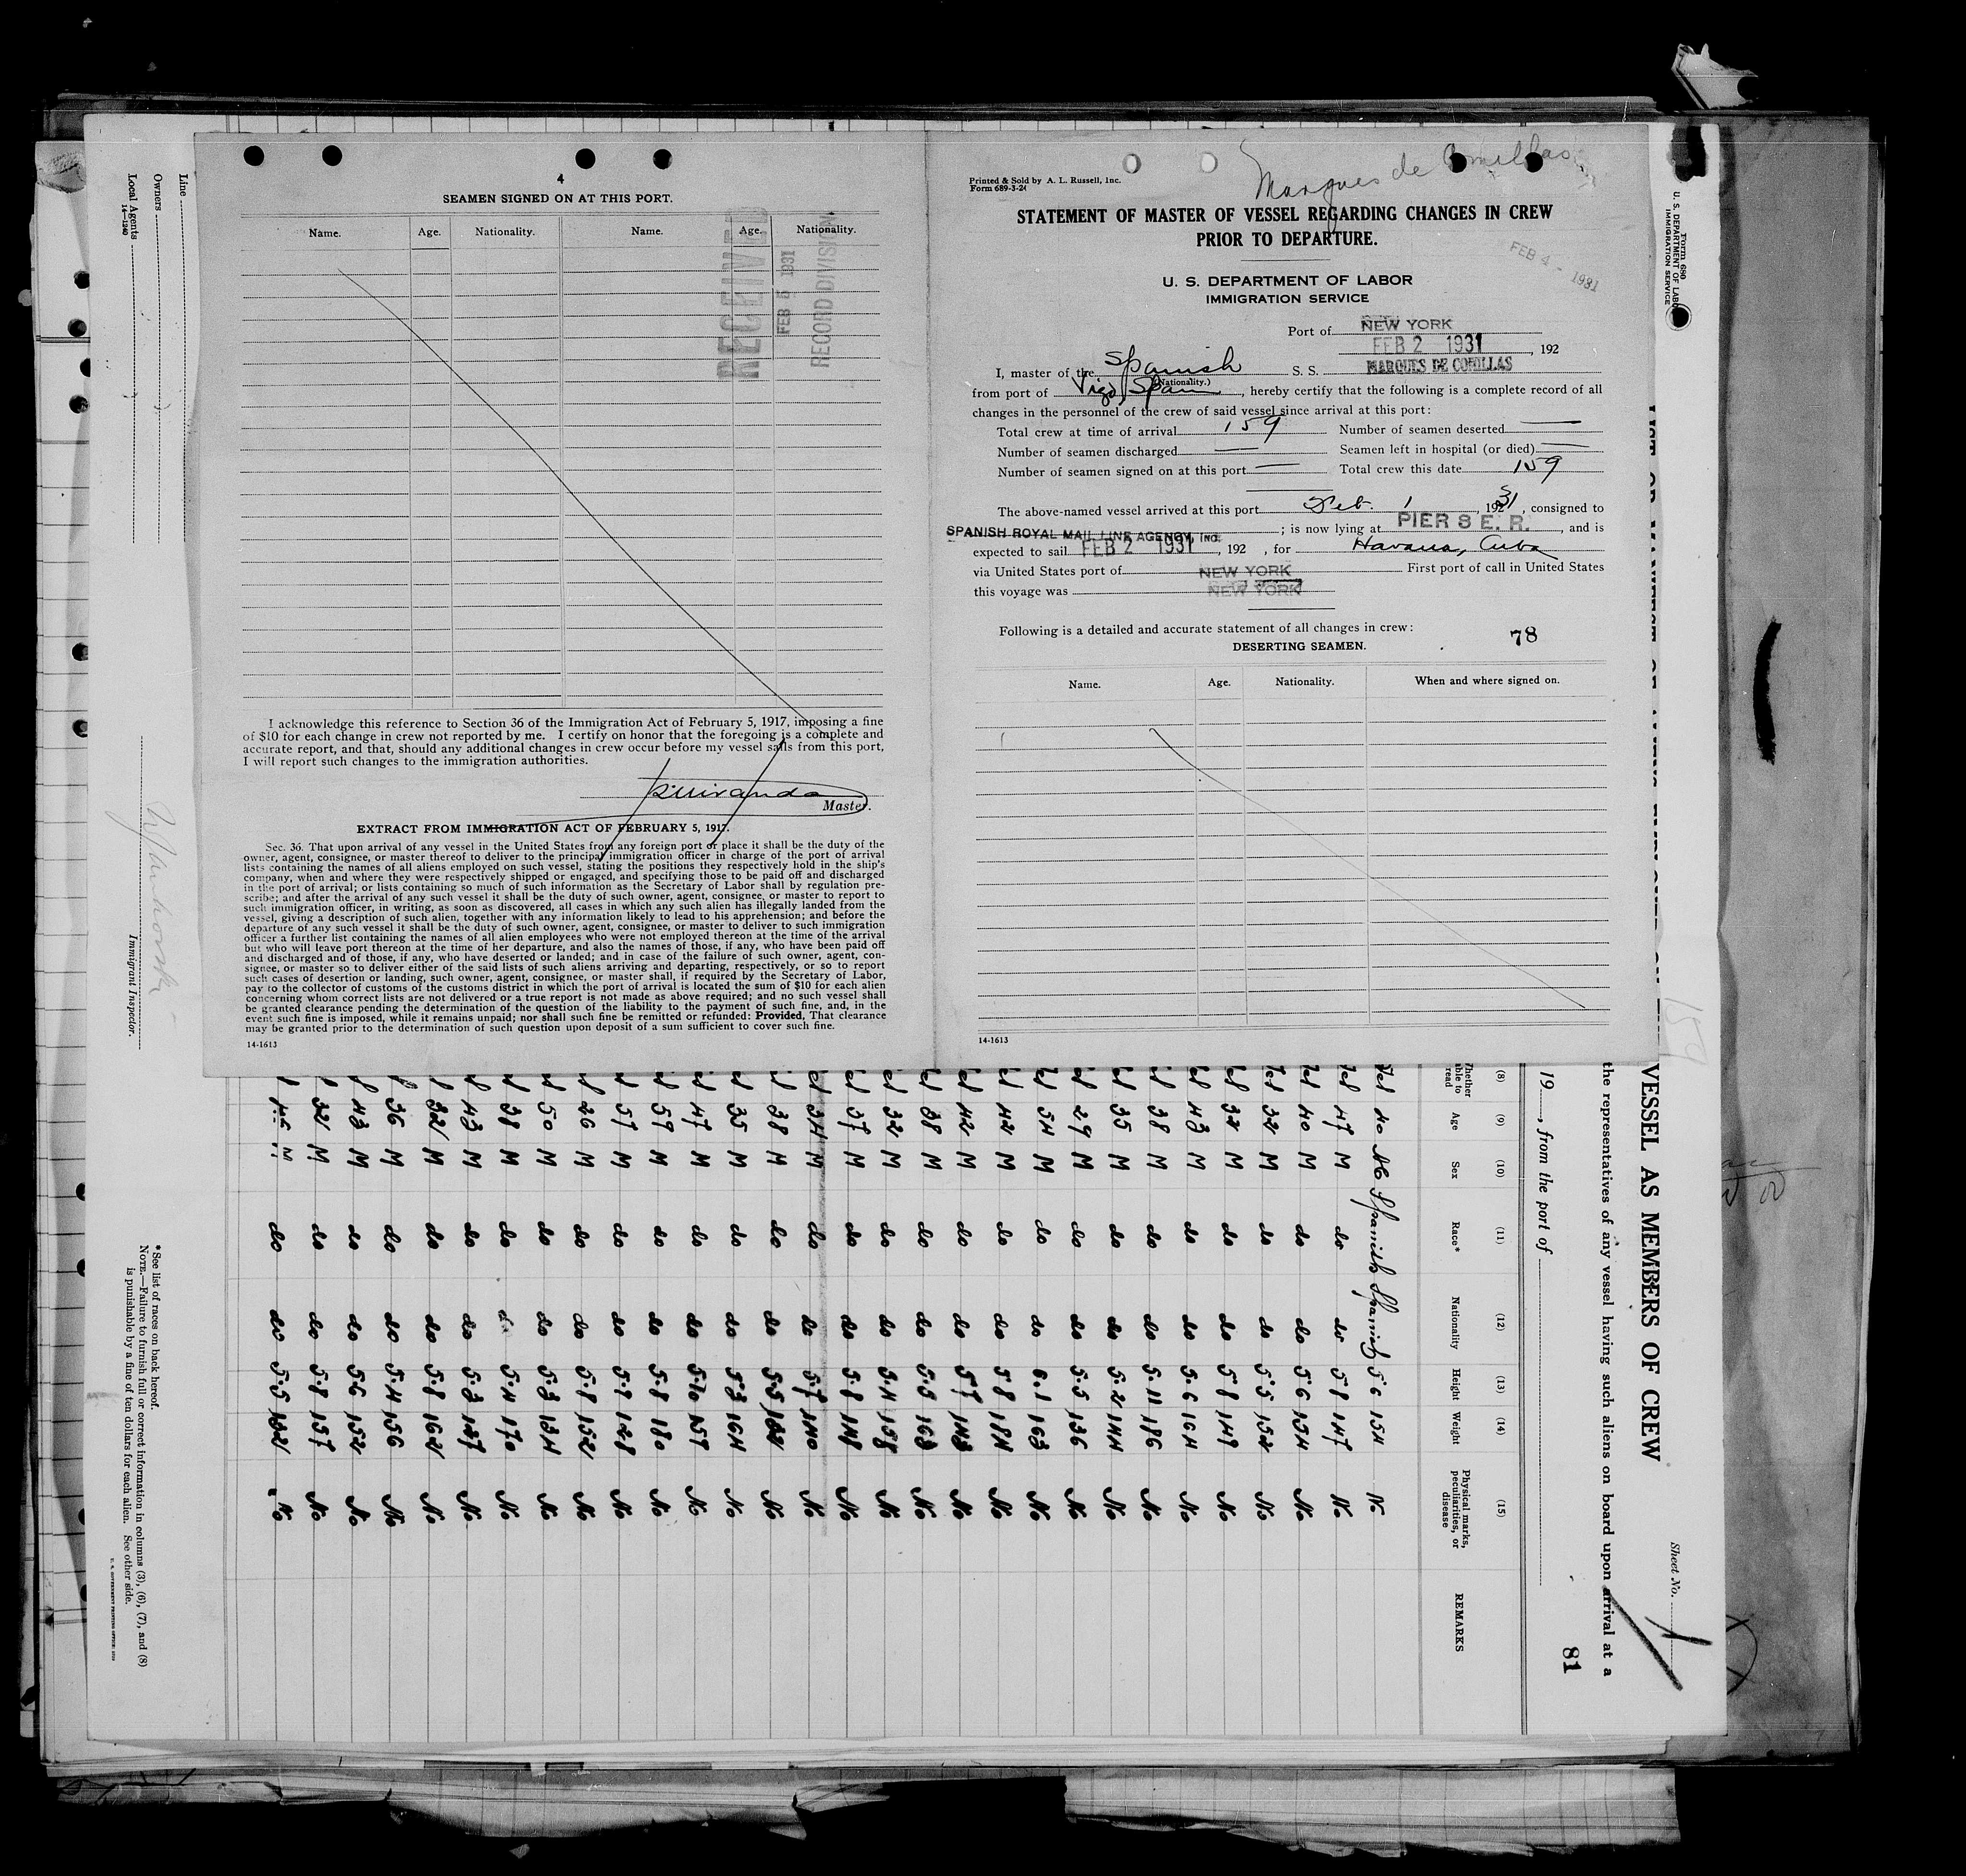 4
SEAMEN SIGNED ON AT THIS PORT.
Name. Age. Nationality. Name. Age. Nationality.
RECEIVED
FEB 5 1931
RECORD DIVISION
I acknowledge this reference to Section 36 of the Immigration Act of February 5, 1917, imposing a fine
of $10 for each change in crew not reported by me. I certify on honor that the foregoing is a complete and
accurate report, and that, should any additional changes in crew occur before my vessel sails from this port,
I will report such changes to the immigration authorities.
Master.
EXTRACT FROM IMMIGRATION ACT OF FEBRUARY 5, 1917.
Sec. 36. That upon arrival of any vessel in the United States from any foreign port or place it shall be the duty of the
owner, agent, consignee, or master thereof to deliver to the principal immigration officer in charge of the port of arrival
lists containing the names of all aliens employed on such vessel, stating the positions they respectively hold in the ship's
company, when and where they were respectively shipped or engaged, and specifying those to be paid off and discharged
in the port of arrival; or lists containing so much of such information as the Secretary of Labor shall by regulation pre-
scribe; and after the arrival of any such vessel it shall be the duty of such owner, agent, consignee, or master to report to
such immigration officer, in writing, as soon as discovered, all cases in which any such alien has illegally landed from the
vessel, giving a description of such alien, together with any information likely to lead to his apprehension; and before the
departure of any such vessel it shall be the duty of such owner, agent, consignee, or master to deliver to such immigration
officer a further list containing the names of all alien employees who were not employed thereon at the time of the arrival
but who will leave port thereon at the time of her departure, and also the names of those, if any, who have been paid off
and discharged and of those, if any, who have deserted or landed; and in case of the failure of such owner, agent, con-
signee, or master so to deliver either of the said lists of such aliens arriving and departing, respectively, or so to report
such cases of desertion or landing, such owner, agent, consignee, or master shall, if required by the Secretary of Labor,
pay to the collector of customs of the customs district in which the port of arrival is located the sum of $10 for each alien
concerning whom correct lists are not delivered or a true report is not made as above required; and no such vessel shall
be granted clearance pending the determination of the question of the liability to the payment of such fine, and, in the
event such fine is imposed, while it remains unpaid; nor shall such fine be remitted or refunded: Provided, That clearance
may be granted prior to the determination of such question upon deposit of a sum sufficient to cover such fine.
14-1613
Marques de Comillas
Printed & Sold by A. L. Russell, Inc.
Form 689-3-24
STATEMENT OF MASTER OF VESSEL REGARDING CHANGES IN CREW
PRIOR TO DEPARTURE.
FEB 4 - 1931
U. S. DEPARTMENT OF LABOR
IMMIGRATION SERVICE
Port of NEW YORK
FEB 2 1931, 192
I, master of the Spanish S. S. MARQUES DE COMILLAS
(Nationality.)
from port of Vigo, Spain, hereby certify that the following is a complete record of all
changes in the personnel of the crew of said vessel since arrival at this port:
Total crew at time of arrival 159 Number of seamen deserted —
Number of seamen discharged — Seamen left in hospital (or died) —
Number of seamen signed on at this port — Total crew this date 159
The above-named vessel arrived at this port Feb. 1, 1931, consigned to
SPANISH ROYAL MAIL LINE AGENCY, INC. ; is now lying at PIER 8 E. R., and is
expected to sail FEB 2 1931, 192 , for Havana, Cuba
via United States port of NEW YORK First port of call in United States
this voyage was NEW YORK
Following is a detailed and accurate statement of all changes in crew:
78
DESERTING SEAMEN.
Name. Age. Nationality. When and where signed on.
14-1613
Form 680
U. S. DEPARTMENT OF LABOR
IMMIGRATION SERVICE
Sheet No. 1
VESSEL AS MEMBERS OF CREW
the representatives of any vessel having such aliens on board upon arrival at a
19 , from the port of
81
159
(8) (9) (10) (11) (12) (13) (14) (15)
Whether able to read Age Sex Race* Nationality Height Weight Physical marks, peculiarities, or disease REMARKS
40 Spanish Spanish 5 6 154 No
47 M do do 5 8 147 No
40 M do do 5 6 154 No
32 M do do 5 5 152 No
32 M do do 5 8 149 No
43 M do do 5.6 164 No
38 M do do 5.11 186 No
35 M do do 5.2 144 No
29 M do do 5.5 136 No
54 M do do 6.1 163 No
42 M do do 5 8 184 No
42 M do do 5 7 143 No
38 M do do 5.5 163 No
32 M do do 5.4 158 No
37 M do do 5.8 148 No
34 M do do 5.7 140 No
38 M do do 5.5 No
35 M do do 5.3 164 No
47 M do do 5.10 157 No
59 M do do 5.8 180 No
57 M do do 5.9 128 No
26 M do do 5.8 152 No
50 M do do 5.3 134 No
38 M do do 5.4 170 No
43 M do do 5.3 127 No
32 M do do 5.8 162 No
36 M do do 5.4 156 No
43 M do do 5.6 152 No
32 M do do 5.8 157 No
M do do 5.5 No
Line
Owners
Local Agents
14—1240
Immigrant Inspector.
*See list of races on back hereof.
NOTE.—Failure to furnish full or correct information in columns (3), (6), (7), and (8)
is punishable by a fine of ten dollars for each alien. See other side.